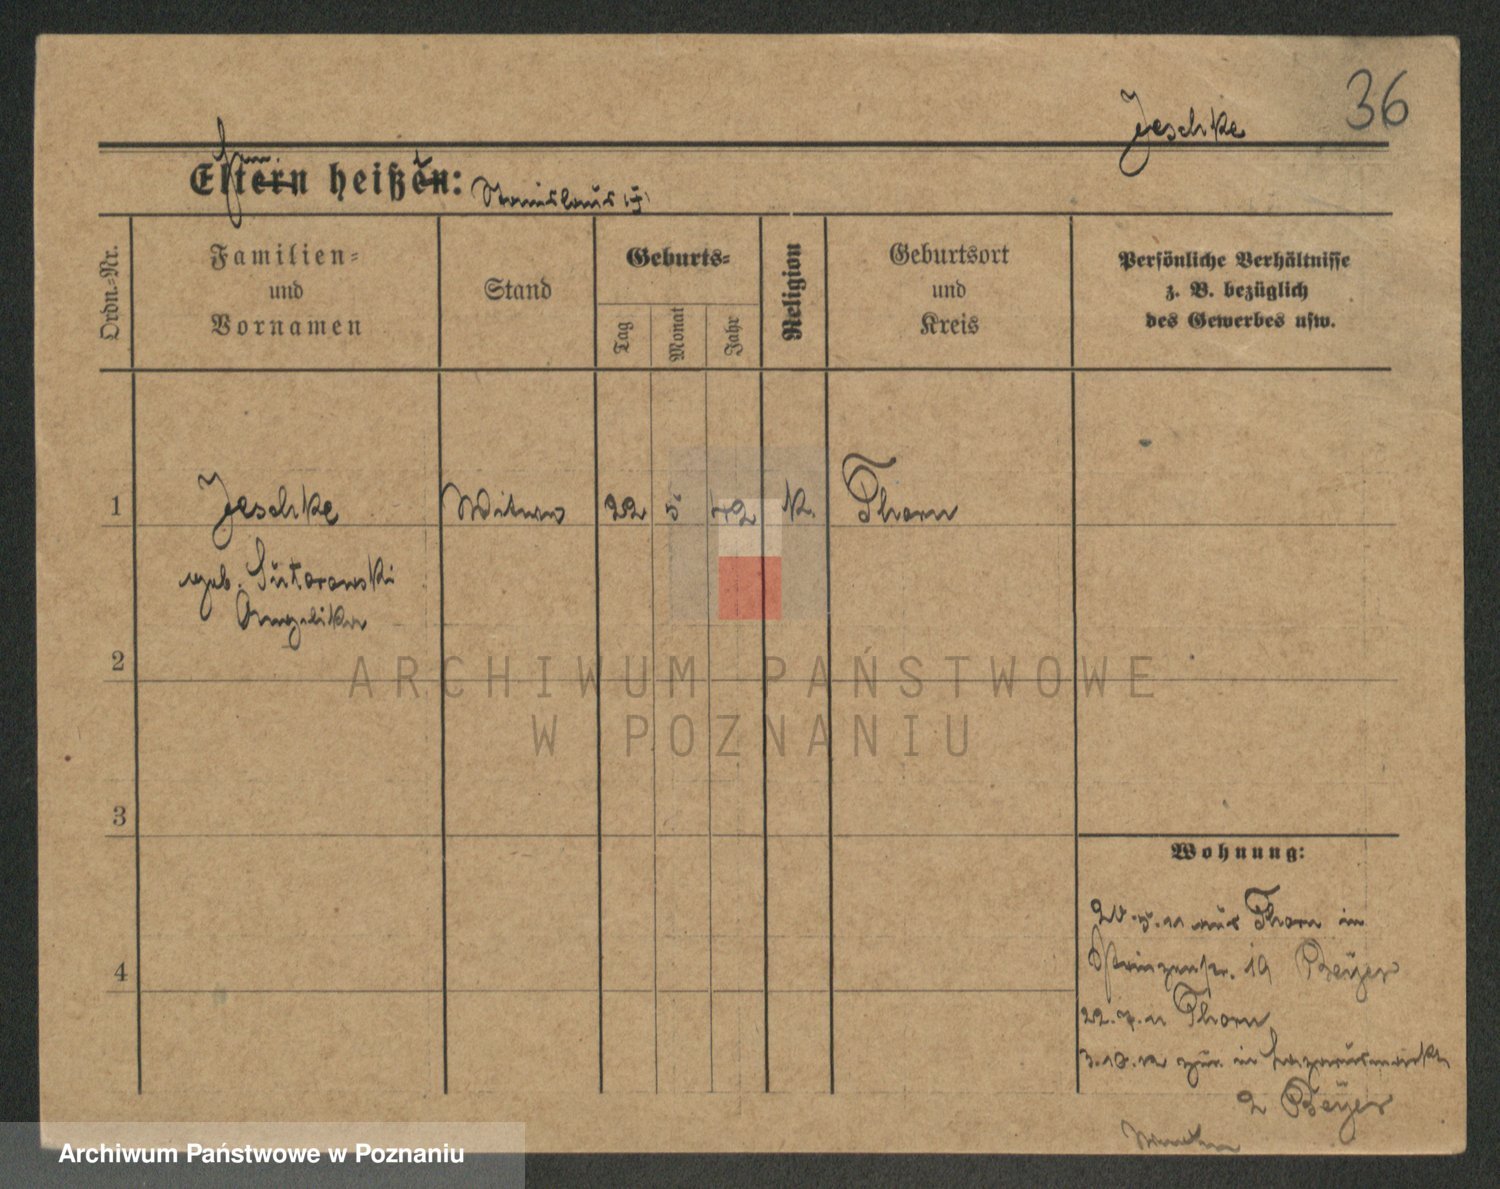 36
Jeschke
Eltern heißen:
Stanislaus
Ordn.-Nr.
Familien-
und
Vornamen
Stand
Geburts-
Tag
Monat
Jahr
Religion
Geburtsort
und
Kreis
Persönliche Verhältnisse
z. B. bezüglich
des Gewerbes usw.
1 Jeschke Witwe 22 5 42 k. Thorn
geb. Sutorowski
Angelika
2
3
4
Wohnung:
20.5.11 aus Thorn in
19 Beyer
22.7.11 Thorn
3.10.12 zur. in
2 Beyer
ARCHIWUM PAŃSTWOWE
W POZNANIU
Archiwum Państwowe w Poznaniu